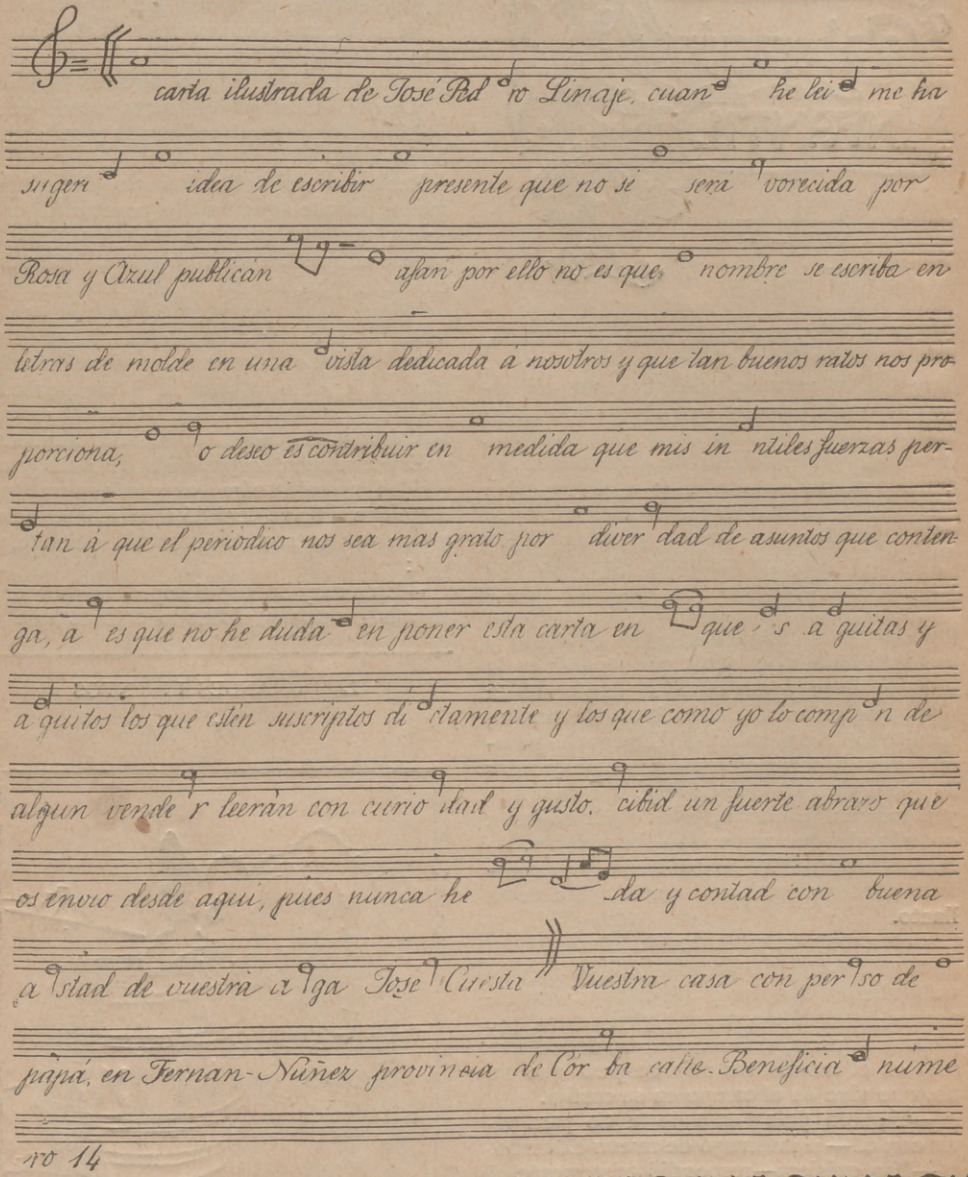 carta ilustrada de José Ped ro Linaje, cuan he lei me ha
sugeri idea de escribir presente que no sé será vorecida por
Rosa y Azul publicán afan por ello no es que nombre se escriba en
letras de molde en una vista dedicada á nosotros y que tan buenos ratos nos pro-
porciona, o deseo es contribuir en medida que mis in ntiles fuerzas per-
tan á que el periódico nos sea mas grato por diver dad de asuntos que conten-
ga, a es que no he duda en poner esta carta en que s a guitas y
a guitos los que estén suscriptos di ctamente y los que como yo lo comp n de
algun vende r leerán con curio dad y gusto. cibid un fuerte abrazo que
os envio desde aqui, pues nunca he da y contad con buena
a stad de vuestra a ga Jose Cuesta Vuestra casa con per so de
papá, en Fernan-Núñez provincia de Cór ba calle Beneficia núme
ro 14